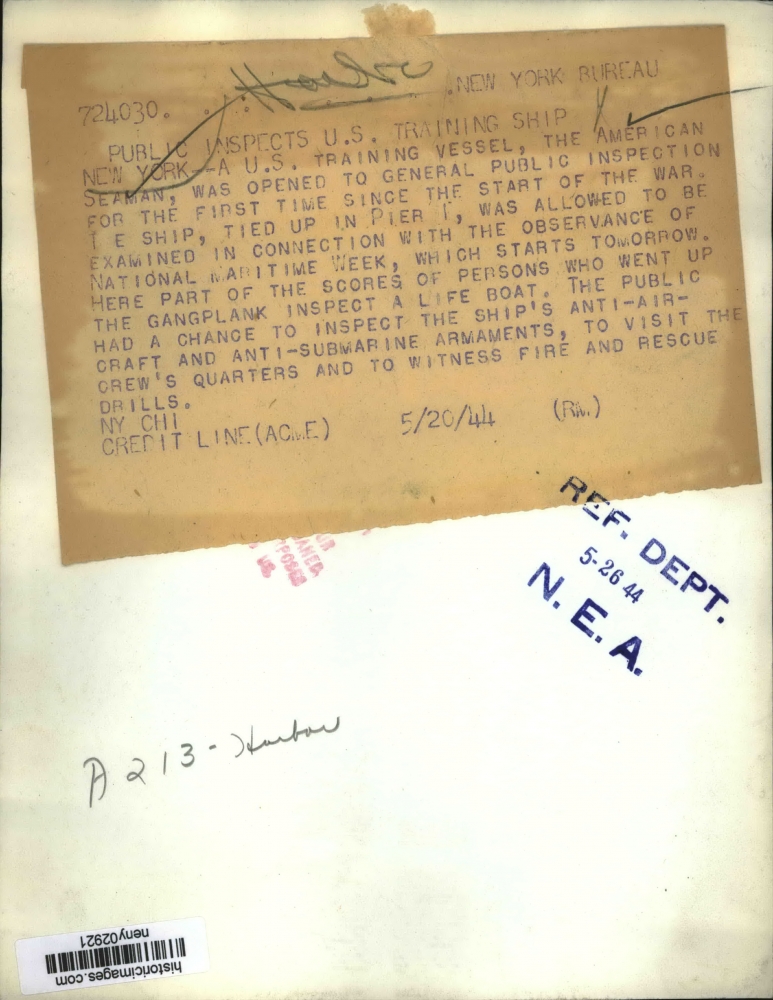 Harbor
NEW YORK BUREAU
724030.
PUBLIC INSPECTS U.S. TRAINING SHIP
NEW YORK--A U.S. TRAINING VESSEL, THE AMERICAN
SEAMAN, WAS OPENED TO GENERAL PUBLIC INSPECTION
FOR THE FIRST TIME SINCE THE START OF THE WAR.
T E SHIP, TIED UP IN PIER 1, WAS ALLOWED TO BE
EXAMINED IN CONNECTION WITH THE OBSERVANCE OF
NATIONAL MARITIME WEEK, WHICH STARTS TOMORROW.
HERE PART OF THE SCORES OF PERSONS WHO WENT UP
THE GANGPLANK INSPECT A LIFE BOAT. THE PUBLIC
HAD A CHANCE TO INSPECT THE SHIP'S ANTI-AIR-
CRAFT AND ANTI-SUBMARINE ARMAMENTS, TO VISIT THE
CREW'S QUARTERS AND TO WITNESS FIRE AND RESCUE
DRILLS.
NY CHI
CREDIT LINE (ACME) 5/20/44 (RM.)
REF. DEPT.
5-26 44
N. E. A.
A 213 - Harbor
historicimages.com
neny02921